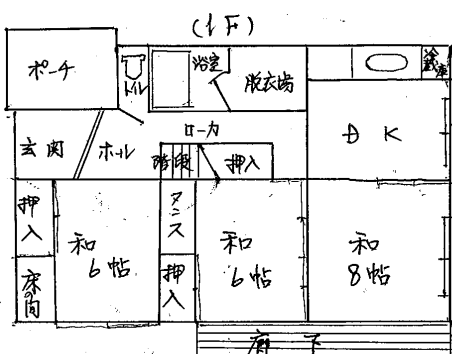 (1F)
ポーチ
トイレ
浴室
脱衣場
冷蔵庫
玄関
ホール
ローカ
階段
押入
DK
押入
床の間
和
6帖
タンス
押入
和
6帖
和
8帖
廊下